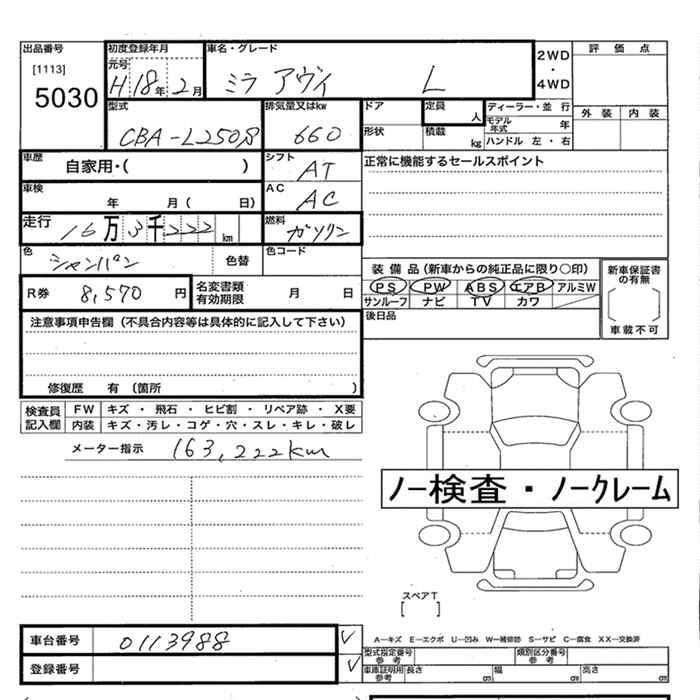 出品番号 [1113] 5030
初度登録年月 元号 H 18年 2月
車名・グレード ミラ アヴィ L
2WD・4WD
評価点
外装 内装
型式 CBA-L250S
排気量又はkw 660
ドア 形状
定員 人
積載 kg
ディーラー・並行
モデル年式 年
ハンドル 左・右
車歴 自家用・( )
シフト AT
正常に機能するセールスポイント
車検 年 月( 日)
AC AC
走行 16万3千222km
燃料 ガソリン
色 シャンパン 色替
色コード
R券 8,570円
名変書類有効期限 月 日
装備品(新車からの純正品に限り○印)
PS PW ABS エアB アルミW
サンルーフ ナビ TV カワ
新車保証書の有無
車載不可
後日品
注意事項申告欄(不具合内容等は具体的に記入して下さい)
修復歴 有(箇所 )
検査員記入欄
FW キズ・飛石・ヒビ割・リペア跡・X要
内装 キズ・汚レ・コゲ・穴・スレ・キレ・破レ
メーター指示 163,222km
ノー検査・ノークレーム
スペアT
[ ]
A―キズ E―エクボ U―凹み W―補修跡 S―サビ C―腐食 XX―交換済
車台番号 0113988 ✓
登録番号 ✓
型式指定番号 参考
類別区分番号 参考
車庫証明用 参考 長さ cm 幅 cm 高さ cm